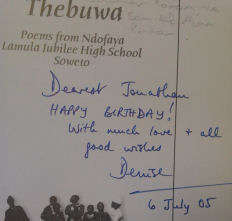 Thebuwa
Poems from Ndofaya
Lamula Jubilee High School
Soweto
Dearest Jonathan
HAPPY BIRTHDAY!
With much love + all
good wishes
Denise
6 July 05